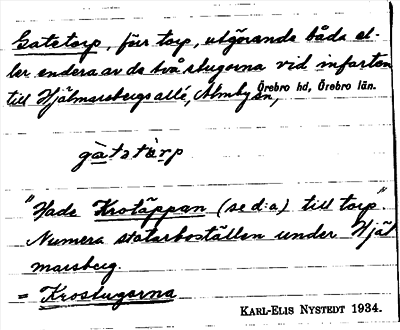 Gatetorp, för torp, utgörande båda el-
ler endera av de två stugorna vid infarten
till Hjälmarsbergs allé, Almby sn, Örebro hd, Örebro län.
gàtetàrp
"Hade Krotäppan (se d:a) till torp".
Numera statarboställen under Hjäl
marsberg.
= Krostugorna
KARL-ELIS NYSTEDT 1934.